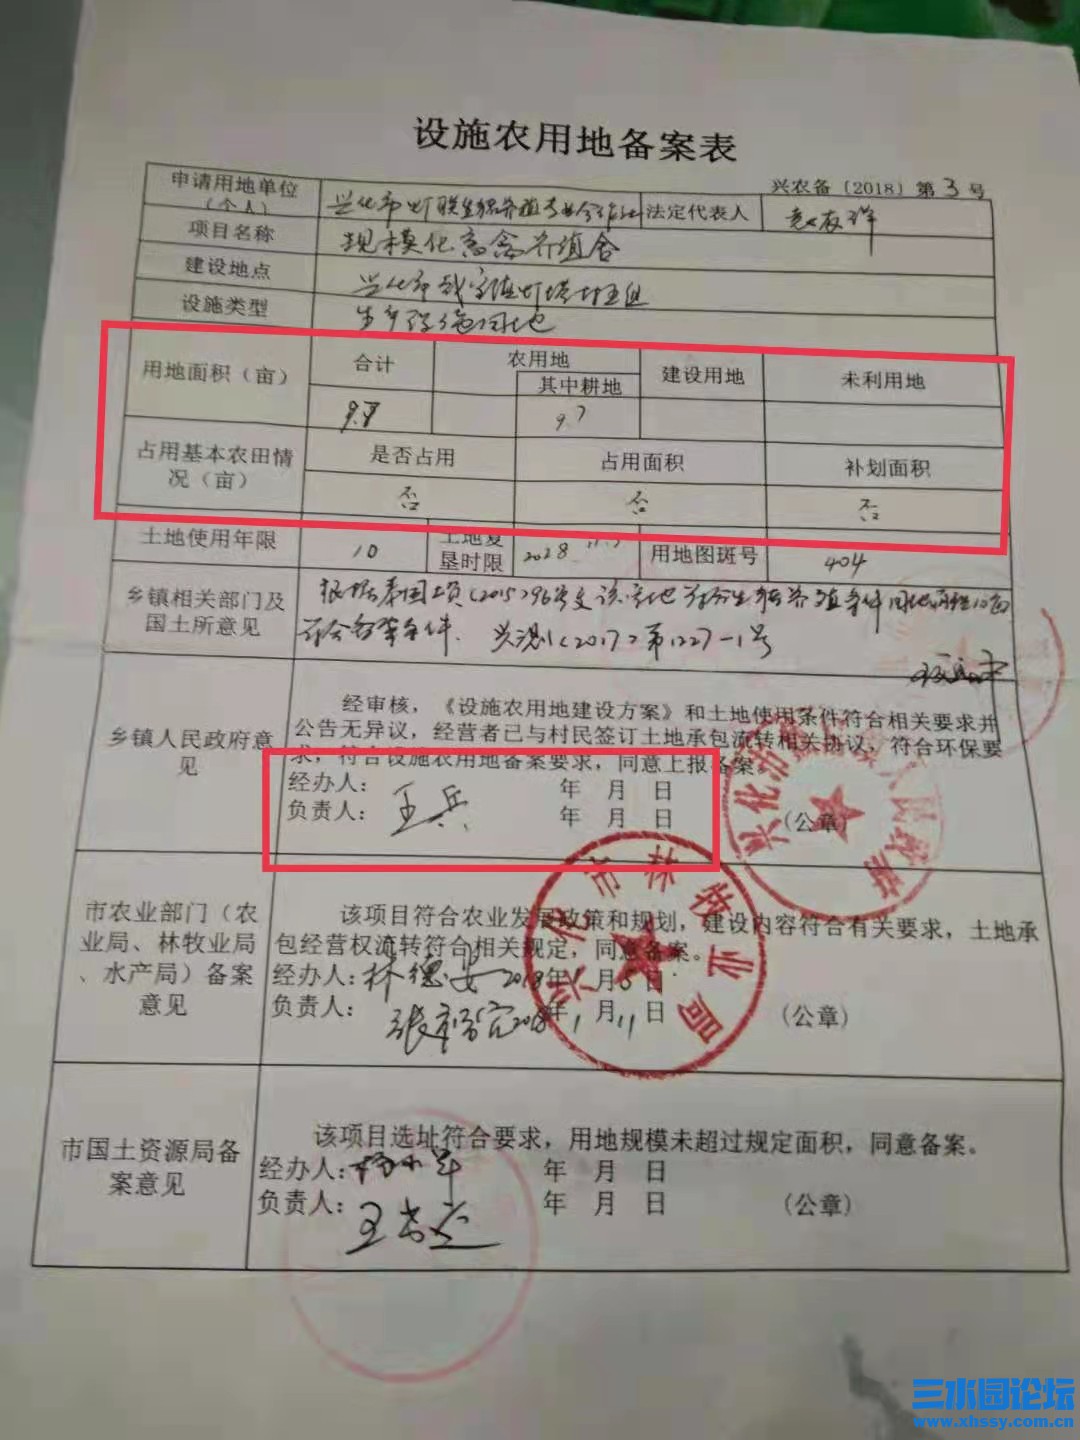 设施农用地备案表
兴农备〔2018〕第3号
申请用地单位（个人） 兴化市 养殖专业合作社 法定代表人
项目名称 规模化畜禽养殖舍
建设地点 兴化市 镇灯塔村五组
设施类型 生产设施用地
用地面积（亩） 合计 农用地 建设用地 未利用地
其中耕地
9.7
占用基本农田情况（亩） 是否占用 占用面积 补划面积
否 否 否
土地使用年限 10 土地复垦时限 2028 用地图斑号 404
乡镇相关部门及国土所意见
根据泰国土资（2015）96号文该宗地符合生猪养殖条件用地
符合备案条件. 兴测（2017）第1227-1号
乡镇人民政府意见
经审核，《设施农用地建设方案》和土地使用条件符合相关要求并
公告无异议，经营者已与村民签订土地承包流转相关协议，符合环保要
求，符合设施农用地备案要求，同意上报备案。
经办人： 年 月 日
负责人：王兵 年 月 日 （公章）
兴化市 镇人民政府
市农业部门（农业局、林牧业局、水产局）备案意见
该项目符合农业发展政策和规划，建设内容符合有关要求，土地承
包经营权流转符合相关规定，同意备案。
经办人：林德 2018年1月5日
负责人：张 2018年1月11日 （公章）
兴化市林牧业局
市国土资源局备案意见
该项目选址符合要求，用地规模未超过规定面积，同意备案。
经办人： 年 月 日
负责人：王 年 月 日 （公章）
三水园论坛
www.xhssy.com.cn